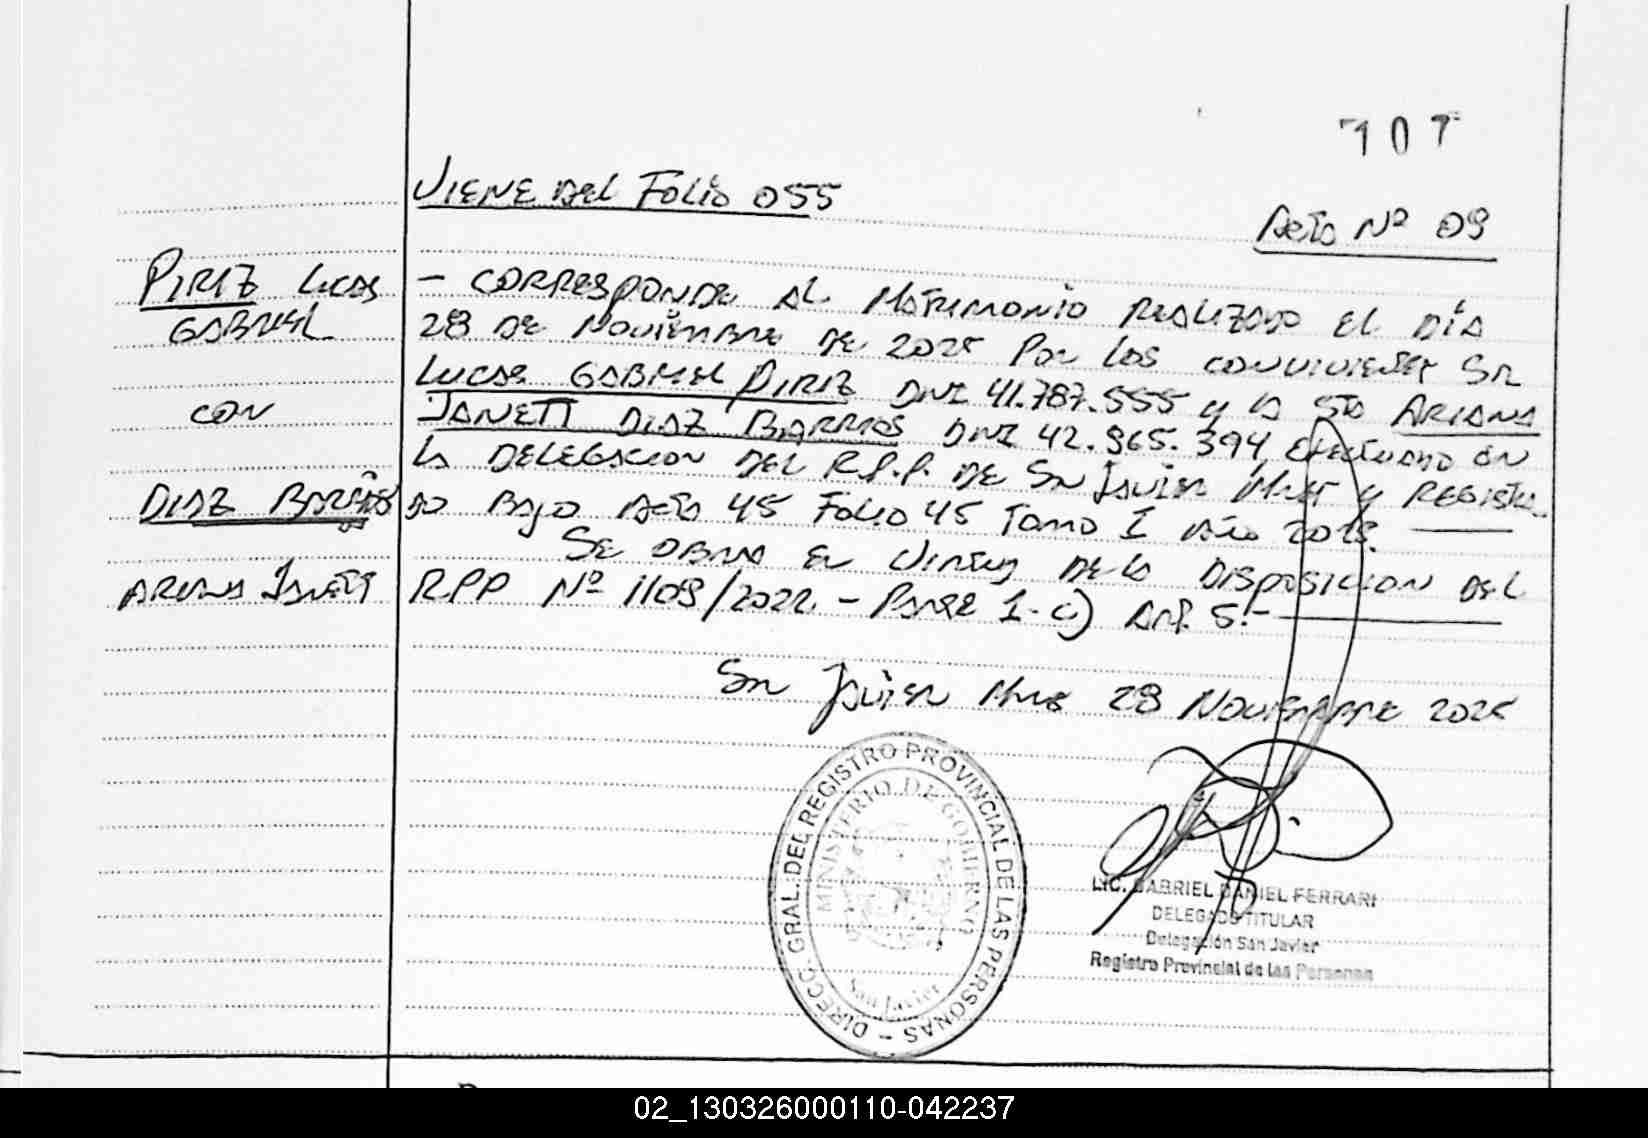 107
VIENE DEL FOLIO 055
Acta Nº 09
PIRIZ LUCAS
GABRIEL
CON
DIAZ BARRIOS
ARIANA JANETT
- CORRESPONDE AL MATRIMONIO REALIZADO EL DÍA
28 DE NOVIEMBRE DE 2025 POR LOS CONVIVIENTES SR
LUCAS GABRIEL PIRIZ DNI 41.787.555 y la STA ARIANA
JANETT DIAZ BARRIOS DNI 42.965.394 efectuado en
la DELEGACION DEL R.P.P. DE San Javier Mnes y REGISTRA
DO BAJO Acta 45 FOLIO 45 TOMO I Año
SE OBRA EN Virtud DE LA DISPOSICION DEL
RPP Nº 1109/2022 - 1-c) Art. 5.-
San Javier Mnes 28 NOVIEMBRE 2025
DIRECC. GRAL. DEL REGISTRO PROVINCIAL DE LAS PERSONAS -
MINISTERIO DE GOBIERNO
San Javier
LIC. GABRIEL DANIEL FERRARI
DELEGADO TITULAR
Delegación San Javier
Registro Provincial de las Personas
02_130326000110-042237